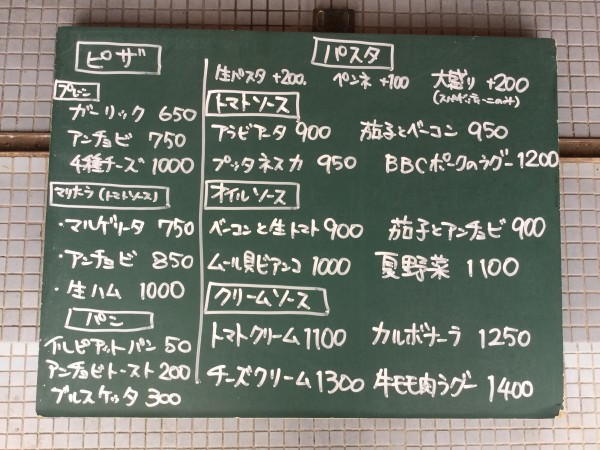 ピザ
プレーン
ガーリック 650
アンチョビ 750
4種チーズ 1000
マリナーラ (トマトソース)
・マルゲリータ 750
・アンチョビ 850
・生ハム 1000
パン
イルピアットパン 50
アンチョビトースト 200
ブルスケッタ 300
パスタ
生パスタ +200. ペンネ +100 大盛り +200
(スパゲッティーのみ)
トマトソース
アラビアータ 900 茄子とベーコン 950
プッタネスカ 950 BBCポークのラグー 1200
オイルソース
ベーコンと生トマト 900 茄子とアンチョビ 900
ムール貝ビアンコ 1000 夏野菜 1100
クリームソース
トマトクリーム 1100 カルボナーラ 1250
チーズクリーム 1300 牛モモ肉ラグー 1400